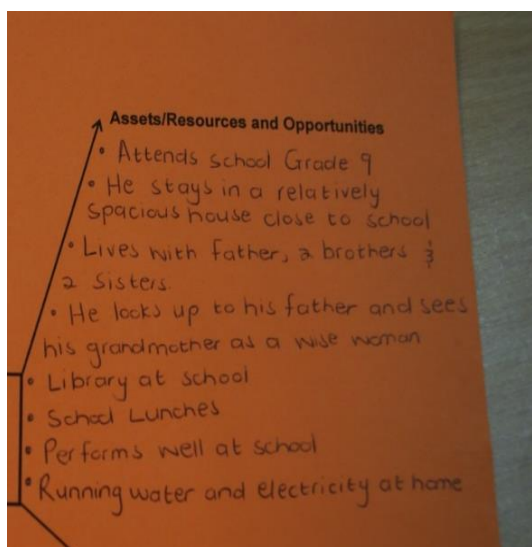 Assets/Resources and Opportunities
• Attends school Grade 9
• He stays in a relatively
spacious house close to school
• Lives with father, 2 brothers &
2 Sisters.
• He looks up to his father and sees
his grandmother as a wise woman
• Library at school
• School Lunches
• Performs well at school
• Running water and electricity at home